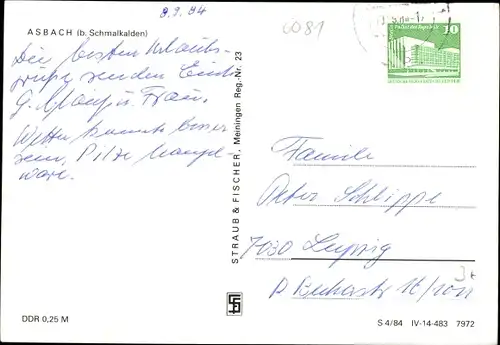 8.9.84
6081
ASBACH (b. Schmalkalden)
Die besten Urlaubs-
grüße senden Euch
G. u. Frau.
Wetter könnte besser
sein, Pilze Mangel-
ware.
STRAUB & FISCHER, Meiningen Reg.-Nr. 23
10
Familie
Peter Schlippe
7030 Leipzig
DDR 0,25 M
S 4/84 IV-14-483 7972